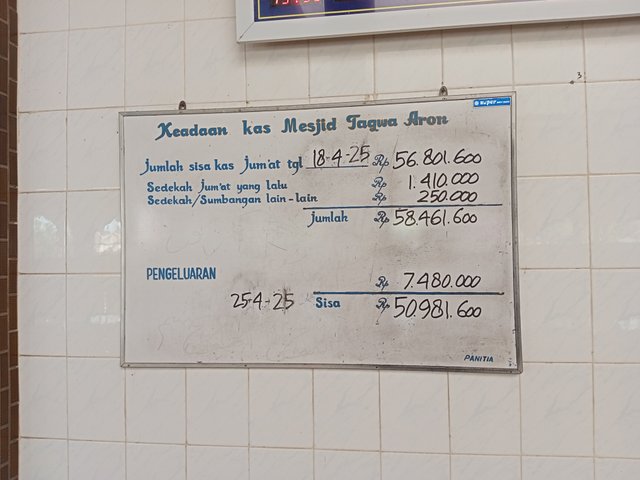 super
Keadaan kas Mesjid Taqwa Aron
Jumlah sisa kas Jum'at tgl 18-4-25 Rp 56.801.600
Sedekah Jum'at yang lalu Rp 1.410.000
Sedekah/Sumbangan lain-lain Rp 250.000
Jumlah Rp 58.461.600
PENGELUARAN
Rp 7.480.000
25-4-25 Sisa Rp 50.981.600
PANITIA